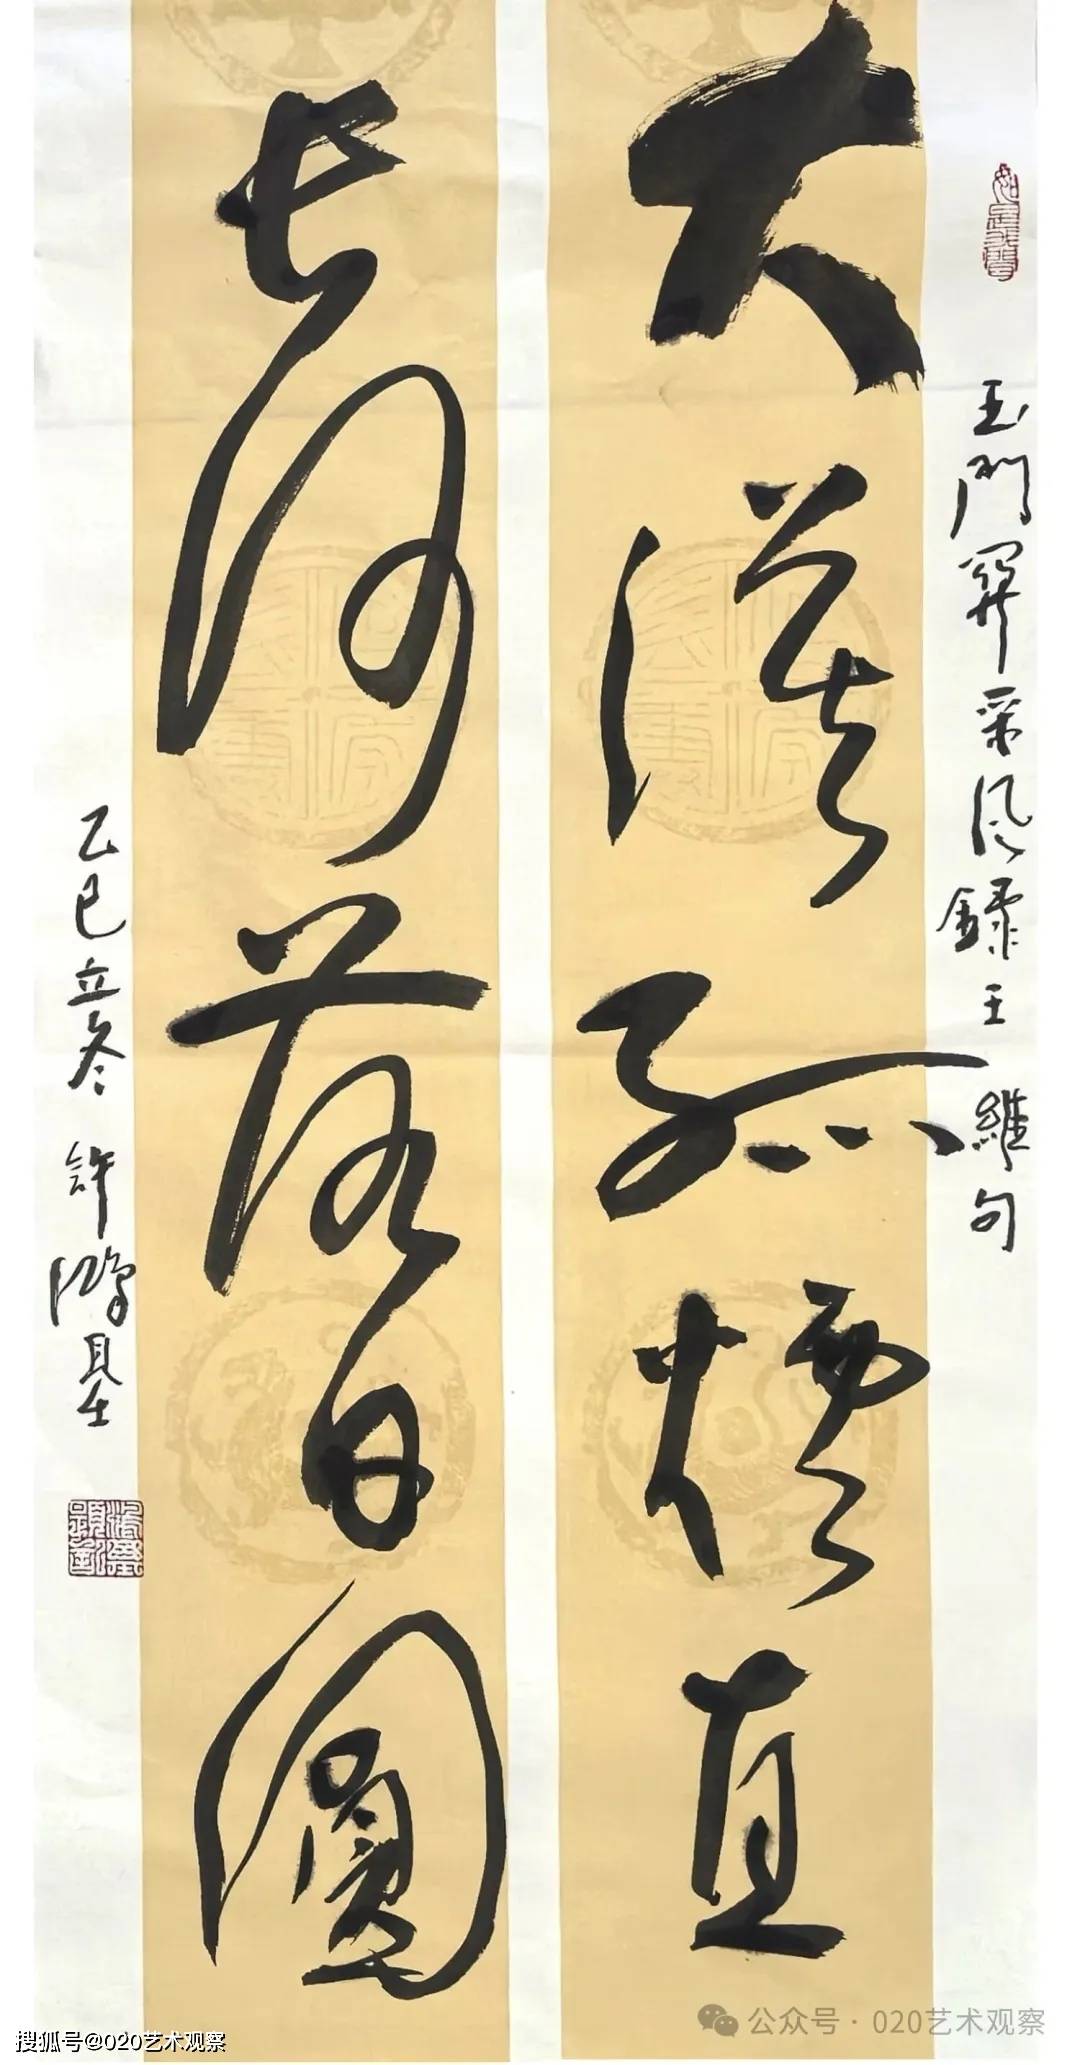 玉門関采风録王維句
大漠孤煙直
長河落日圓
乙巳立冬 許鴻基
搜狐号@020艺术观察
公众号·020艺术观察